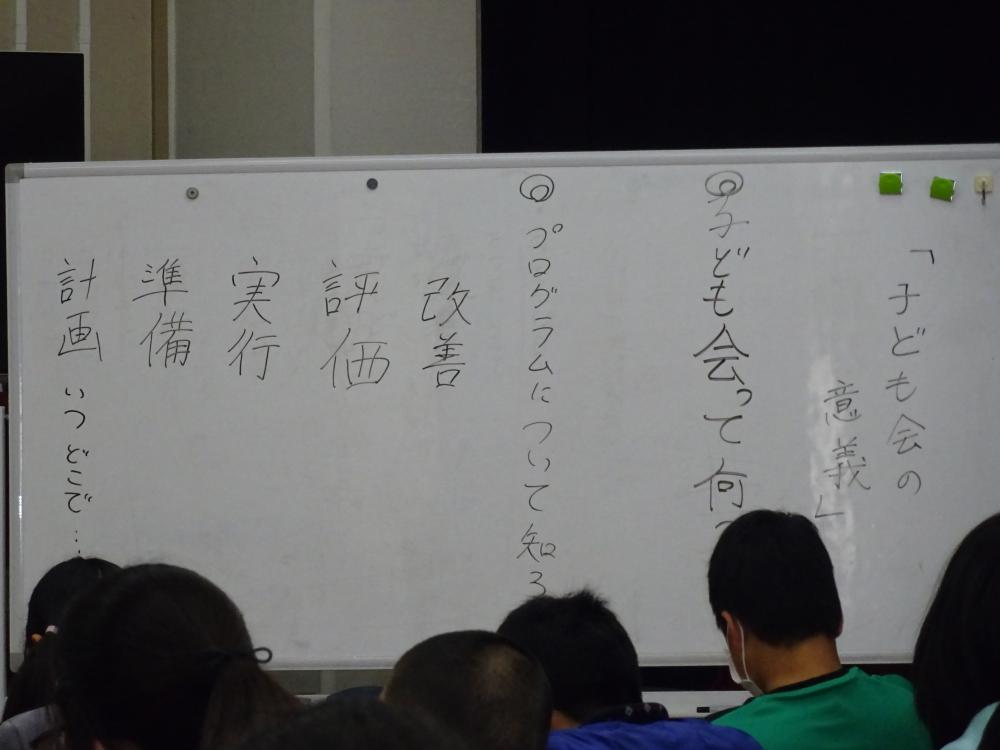 「子ども会の
意義」
◎子ども会って何
◎プログラムについて知ろ
改善
評価
実行
準備
計画 いつどこで…